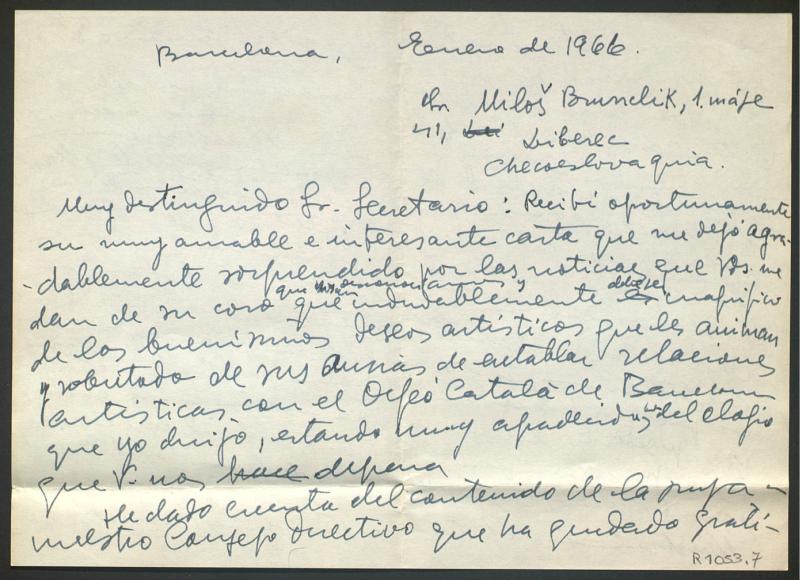 Barcelona, Enero de 1966.
Sr. Miloš Brunclik, 1. máje
41, Liberec
Checoeslovaquia.
Muy destinguido Sr. Secretario: Recibí oportunamente
su muy amable e interesante carta que me dejó agra-
-dablemente sorprendido por las noticias que Vds. me
dan de su coro que indudablemente debe ser magnífico
de los buenísimos deseos artísticos que les animan
y sobretodo de sus ansias de entablar relaciones
artísticas con el Orfeó Català de Barcelona
que yo dirijo, estando muy agradecidos del elogio
que V. nos hace depara
He dado cuenta del contenido de la suya a
nuestro Consejo Directivo que ha quedado grati-
R1053.7